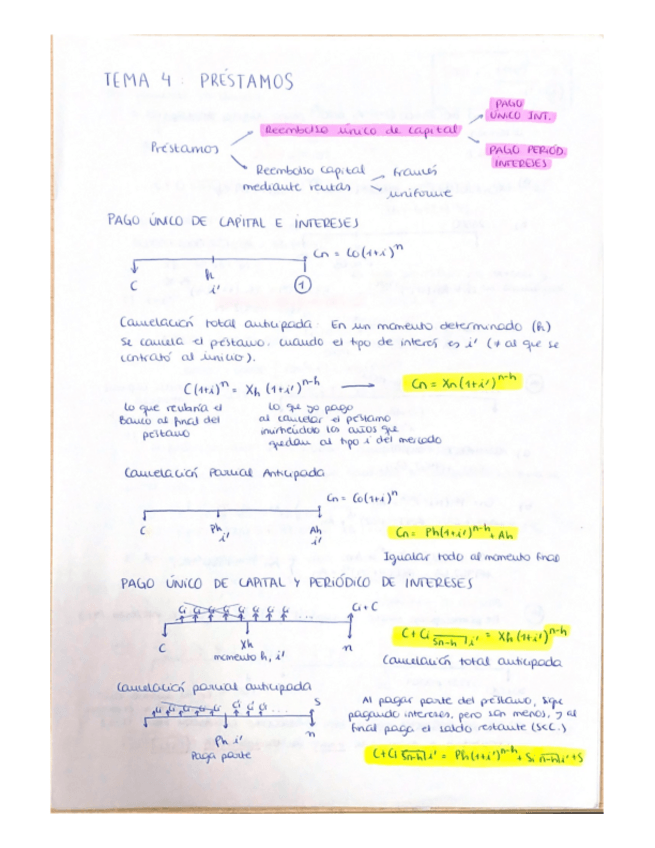 TEMA 4: PRÉSTAMOS
PAGO
ÚNICO INT.
Reembolso único de capital
Préstamos
PAGO PERIÓD.
INTERESES
Reembolso capital
mediante rentas
francés
uniforme
PAGO ÚNICO DE CAPITAL E INTERESES
Cn = Co(1+i)^n
C
h
i'
1
Cancelación total anticipada: En un momento determinado (h)
se cancela el préstamo, cuando el tipo de interés es i' (≠ al que se
contrató al inicio).
C(1+i)^n = Xh (1+i')^n-h → Cn = Xn(1+i')^n-h
Lo que recibiría el
Banco al final del
préstamo
Lo que yo pago
al cancelar el préstamo
invirtiéndolo los años que
quedan al tipo i del mercado
Cancelación Parcial Anticipada
Cn = Co(1+i)^n
C
Ph
i'
Ah
i'
Cn = Ph(1+i')^n-h + Ah
Igualar todo al momento final
PAGO ÚNICO DE CAPITAL Y PERIÓDICO DE INTERESES
Ci Ci Ci Ci Ci Ci Ci ...
Ci + C
C
Xh
n
momento h, i'
C + Ci Sn-h i' = Xh (1+i')^n-h
Cancelación total anticipada
Cancelación parcial anticipada
Ci Ci Ci ...
S
n
Ph i'
Paga parte
Al pagar parte del préstamo, sigue
pagando intereses, pero son menos, y al
final paga el saldo restante (S<C.)
C + Ci Sn-h i' = Ph(1+i')^n-h + Si n-h i' + S